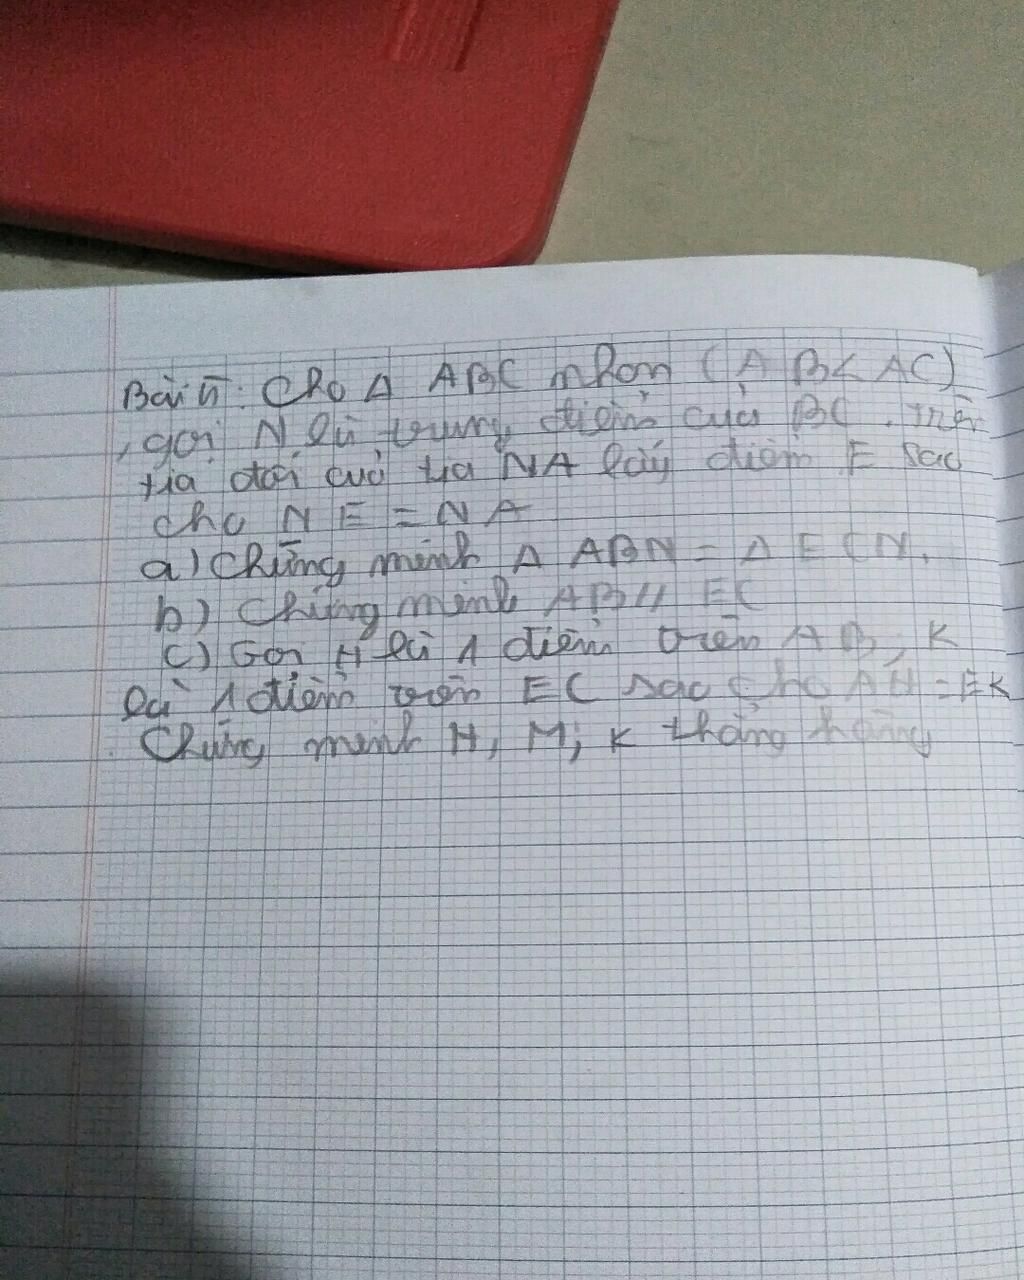 Bài 5: Cho Δ ABC nhọn (AB < AC)
, gọi N là trung điểm của BC. Trên
tia đối cuả tia NA lấy điểm E sao
cho NE = NA
a) Chứng minh Δ ABN = Δ ECN.
b) Chứng minh AB // EC
c) Gọi H là 1 điểm trên AB, K
là 1 điểm trên EC sao cho AH = EK
Chứng minh H, M, K thẳng hàng